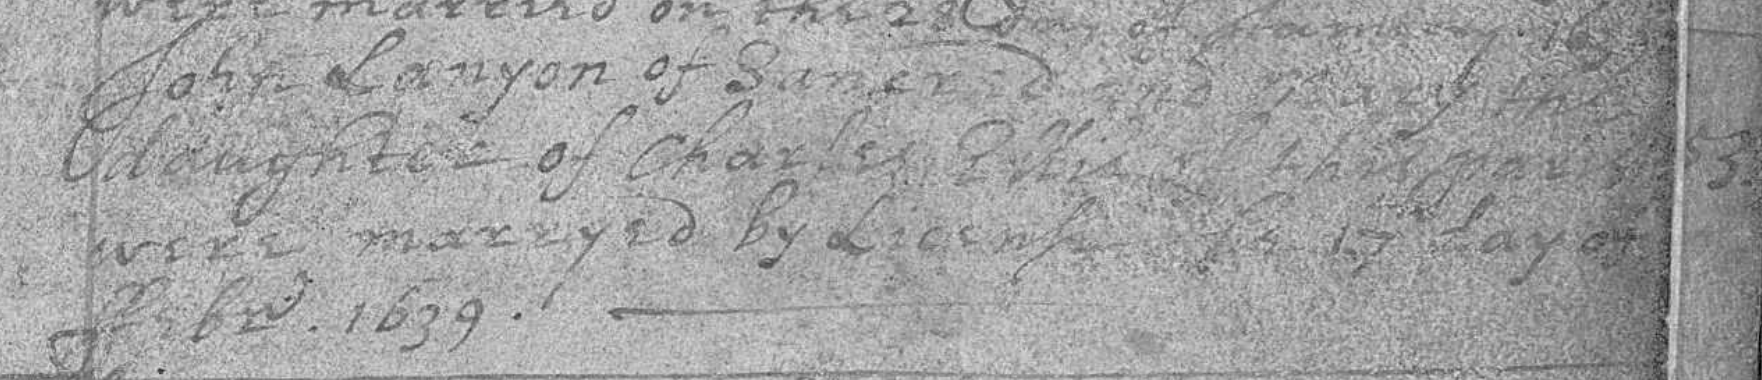 were marcied on the 22 day of January 163
John Lanyon of Sancred and Mary the
daughter of Charles Ellis of this paris
were marryed by License the 17th day of
ffebru. 1639.